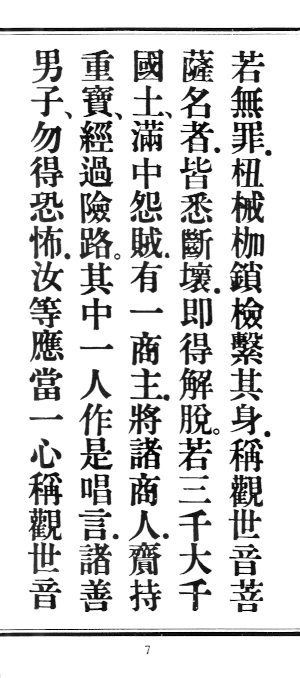 若無罪.杻械枷鎖檢繫其身.稱觀世音菩
薩名者.皆悉斷壞.即得解脫。若三千大千
國土、滿中怨賊.有一商主.將諸商人.齎持
重寶、經過險路。其中一人作是唱言.諸善
男子、勿得恐怖.汝等應當一心稱觀世音
7